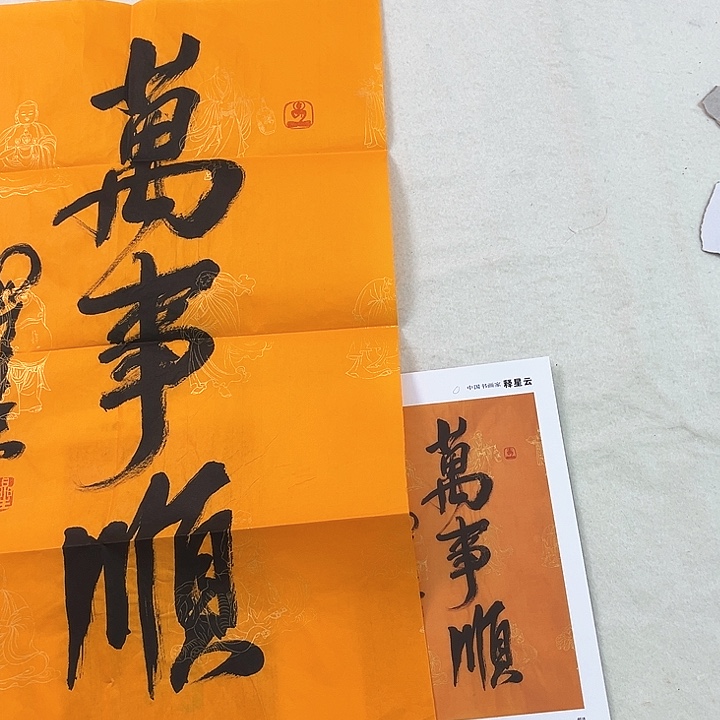 萬事順
中国书画家 释星云
萬事順